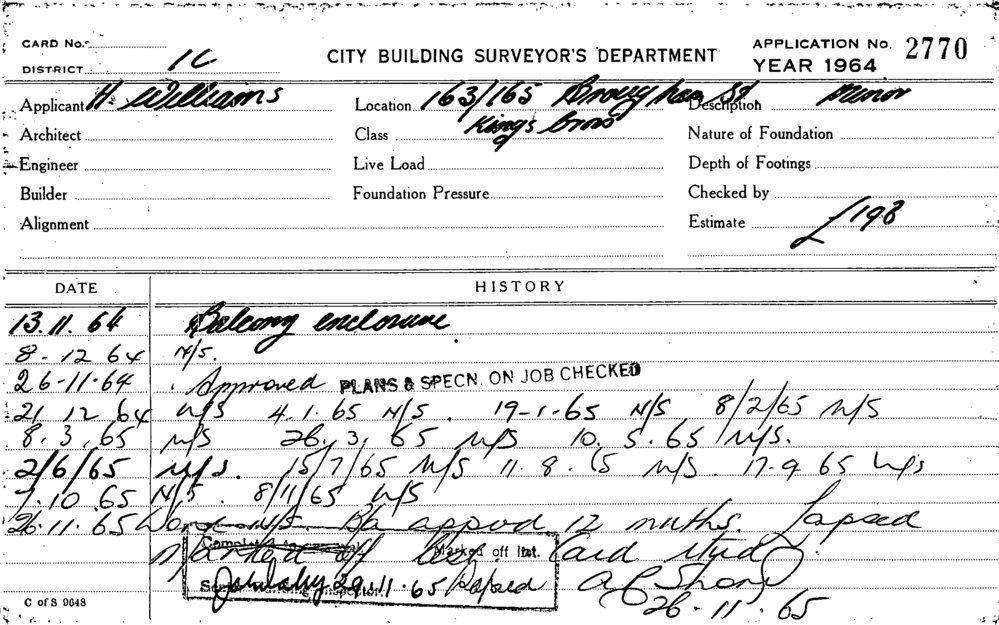 CARD No.
DISTRICT 1C
CITY BUILDING SURVEYOR'S DEPARTMENT
APPLICATION No. 2770
YEAR 1964
Applicant H. Williams
Location 163/165 Brougham St
Kings Cross
Description Minor
Architect
Class
Nature of Foundation
Engineer
Live Load
Depth of Footings
Builder
Foundation Pressure
Checked by
Alignment
Estimate £198
DATE HISTORY
13.11.64 Balcony enclosure
8-12 64 N/S.
26-11-64 . Approved PLANS & SPECN. ON JOB CHECKED
21 12 64 N/S 4.1.65 N/S. 19-1-65 N/S 8/2/65 N/S
8.3.65 N/S 26.3.65 N/S 10.5.65 N/S.
2/6/65 N/S. 15/7/65 N/S 11.8.65 N/S. 17.9 65 N/S
7.10.65 N/S. 8/11/65 N/S
26.11.65 Work N/S. BA approd 12 mnths. lapsed
Marked off list. Card
Completed to approval Marked off list.
29.11.65 Lapsed
Senior Building Inspector.
26-11-65
C of S 9648